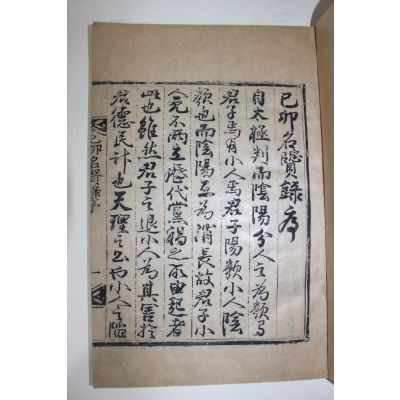 己卯名賢錄序
自太極判而陰陽分人之為類與
君子焉有小人焉君子陽類小人陰
類也而陰陽互為消長故君子小
人完不兩立歷代黨禍之所由起者
此也雖然君子之退小人為其害於
君德民計也天理之公也小人之陷
己卯名賢錄序
一